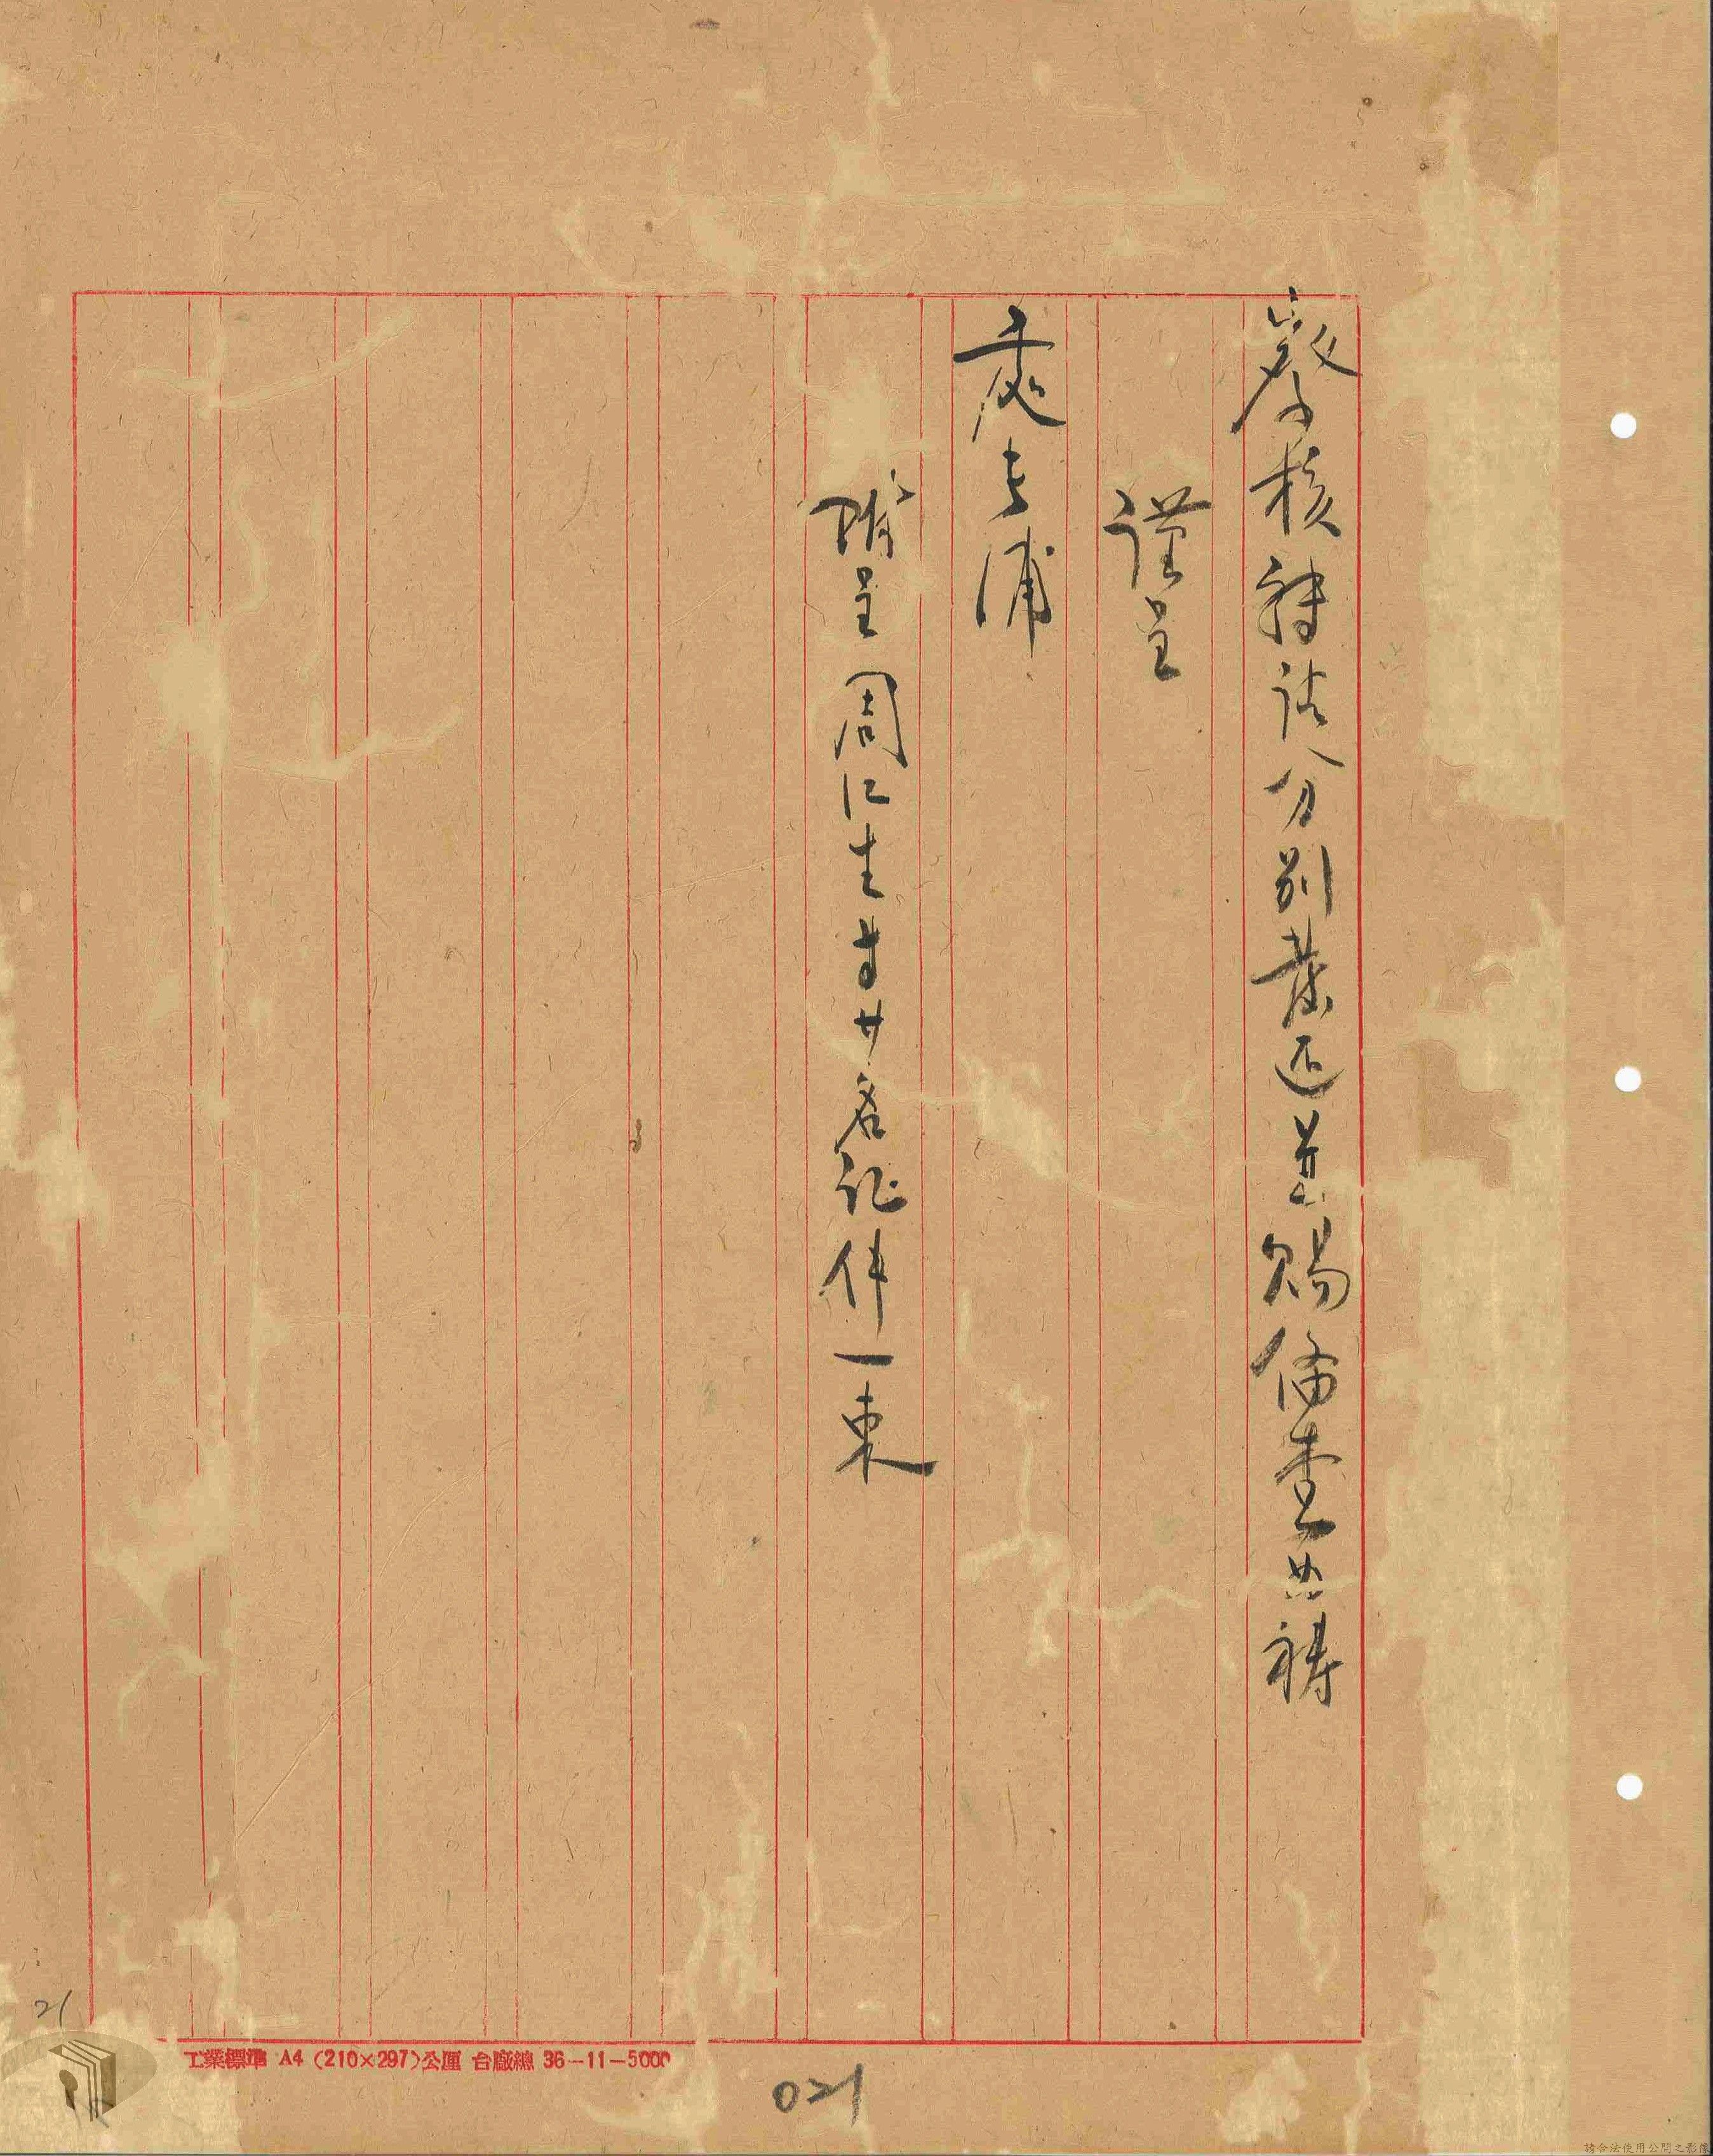 詧核轉請分別蓋還並賜備查為禱
謹呈
處長浦
附呈周仁生等廿名証件一束
工業標準 A4 (210×297)公厘 台廠總 36-11-5000
21
021
請合法使用公開之影像